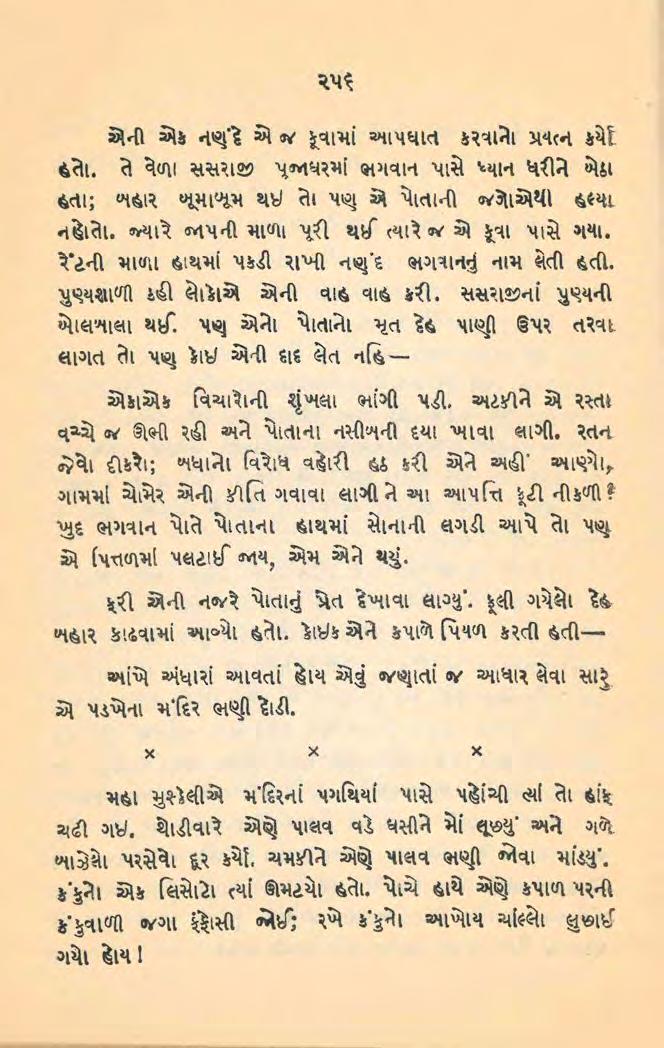 ૨૫૬
એની એક નણંદે એ જ કૂવામાં આપઘાત કરવાનો પ્રયત્ન કર્યો
હતો. તે વેળા સસરાજી પૂજાઘરમાં ભગવાન પાસે ધ્યાન ધરીને બેઠા
હતા; બહાર બૂમાબૂમ થઇ તો પણ એ પોતાની જગોએથી હલ્યા
નહોતો. જ્યારે જાપની માળા પૂરી થઈ ત્યારે જ એ કૂવા પાસે ગયા.
રેંટની માળા હાથમાં પકડી રાખી નણંદ ભગવાનનું નામ લેતી હતી.
પુણ્યશાળી કહી લોકોએ એની વાહ વાહ કરી. સસરાજીનાં પુણ્યની
બોલબાલા થઈ. પણ એનો પોતાનો મૃત દેહ પાણી ઉપર તરવા
લાગત તો પણ કોઇ એની દાદ લેત નહિ—
એકાએક વિચારોની શૃંખલા ભાંગી પડી. અટકીને એ રસ્તા
વચ્ચે જ ઊભી રહી અને પોતાના નસીબની દયા ખાવા લાગી. રતન
જેવો દીકરો; બધાનો વિરોધ વહોરી હઠ કરી એને અહીં આણ્યો,
ગામમાં ચોમેર એની કીર્તિ ગવાવા લાગી ને આ આપત્તિ ફૂટી નીકળી?
ખુદ ભગવાન પોતે પોતાના હાથમાં સોનાની લગડી આપે તો પણ
એ પિત્તળમાં પલટાઈ જાય, એમ એને થયું.
ફરી એની નજરે પોતાનું પ્રેત દેખાવા લાગ્યું. ફૂલી ગયેલો દેહ
બહાર કાઢવામાં આવ્યો હતો. કોઇક એને કપાળે પિયળ કરતી હતી—
આંખે અંધારાં આવતાં હોય એવું જણાતાં જ આધાર લેવા સારુ
એ પડખેના મંદિર ભણી દોડી.
× × ×
મહા મુશ્કેલીએ મંદિરનાં પગથિયાં પાસે પહોંચી ત્યાં તો હાંફ
ચઢી ગઇ. થોડીવારે એણે પાલવ વડે ઘસીને મોં લૂછ્યું અને ગળે
બાઝેલો પરસેવો દૂર કર્યો. ચમકીને એણે પાલવ ભણી જોવા માંડ્યું.
કંકુનો એક લિસોટો ત્યાં ઊમટયો હતો. પોચે હાથે એણે કપાળ પરની
કંકુવાળી જગા ફંફોસી જોઈ; રખે કંકુનો આખોય ચાંલ્લો લુછાઈ
ગયો હોય!